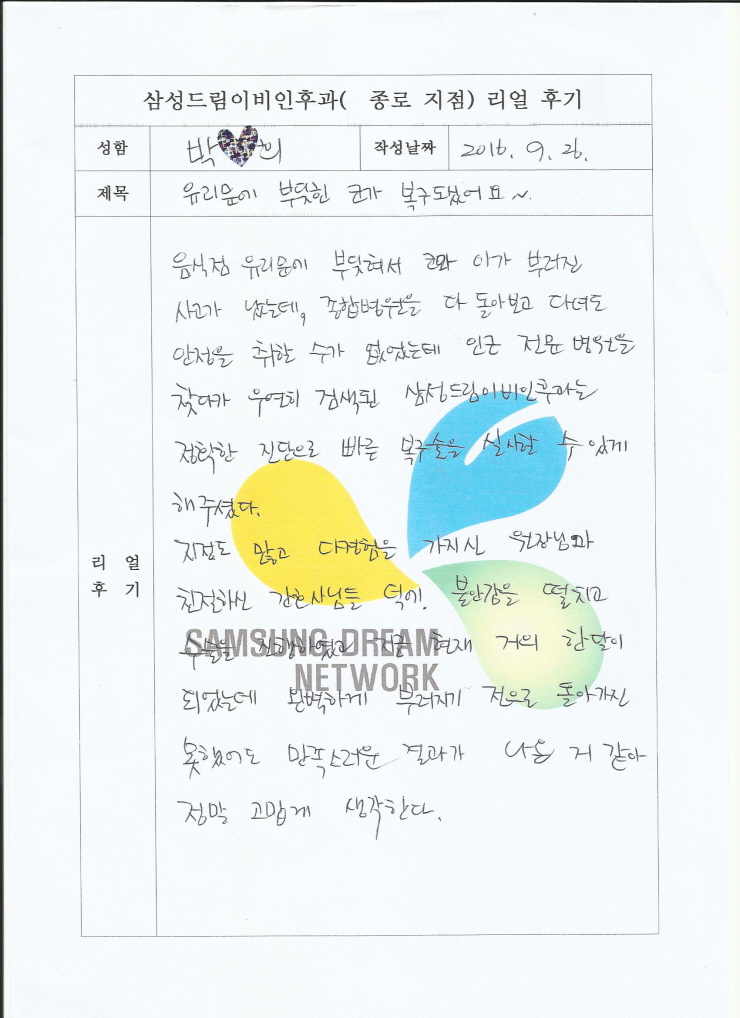 삼성드림이비인후과( 종로 지점) 리얼 후기
성함 박 의 작성날짜 2016. 9. 26.
제목 유리문에 부딪힌 코가 복구되었어요~.
음식점 유리문에 부딪혀서 코와 이가 부러진
사고가 났는데, 종합병원을 다 돌아보고 다녀도
안정을 취할 수가 없었는데 인근 전문 병원을
찾다가 우연히 검색된 삼성드림이비인후과는
정확한 진단으로 빠른 복구술을 실시할 수 있게
해주셨다.
지점도 많고 다경험을 가지신 원장님과
리 얼
후 기
친절하신 간호사님들 덕에. 불안감을 떨치고
수술을 진행하였고 지금 현재 거의 한달이
SAMSUNG DREAM
NETWORK
되었는데 완벽하게 부러지기 전으로 돌아가진
못했어도 만족스러운 결과가 나온 거 같아
정말 고맙게 생각한다.